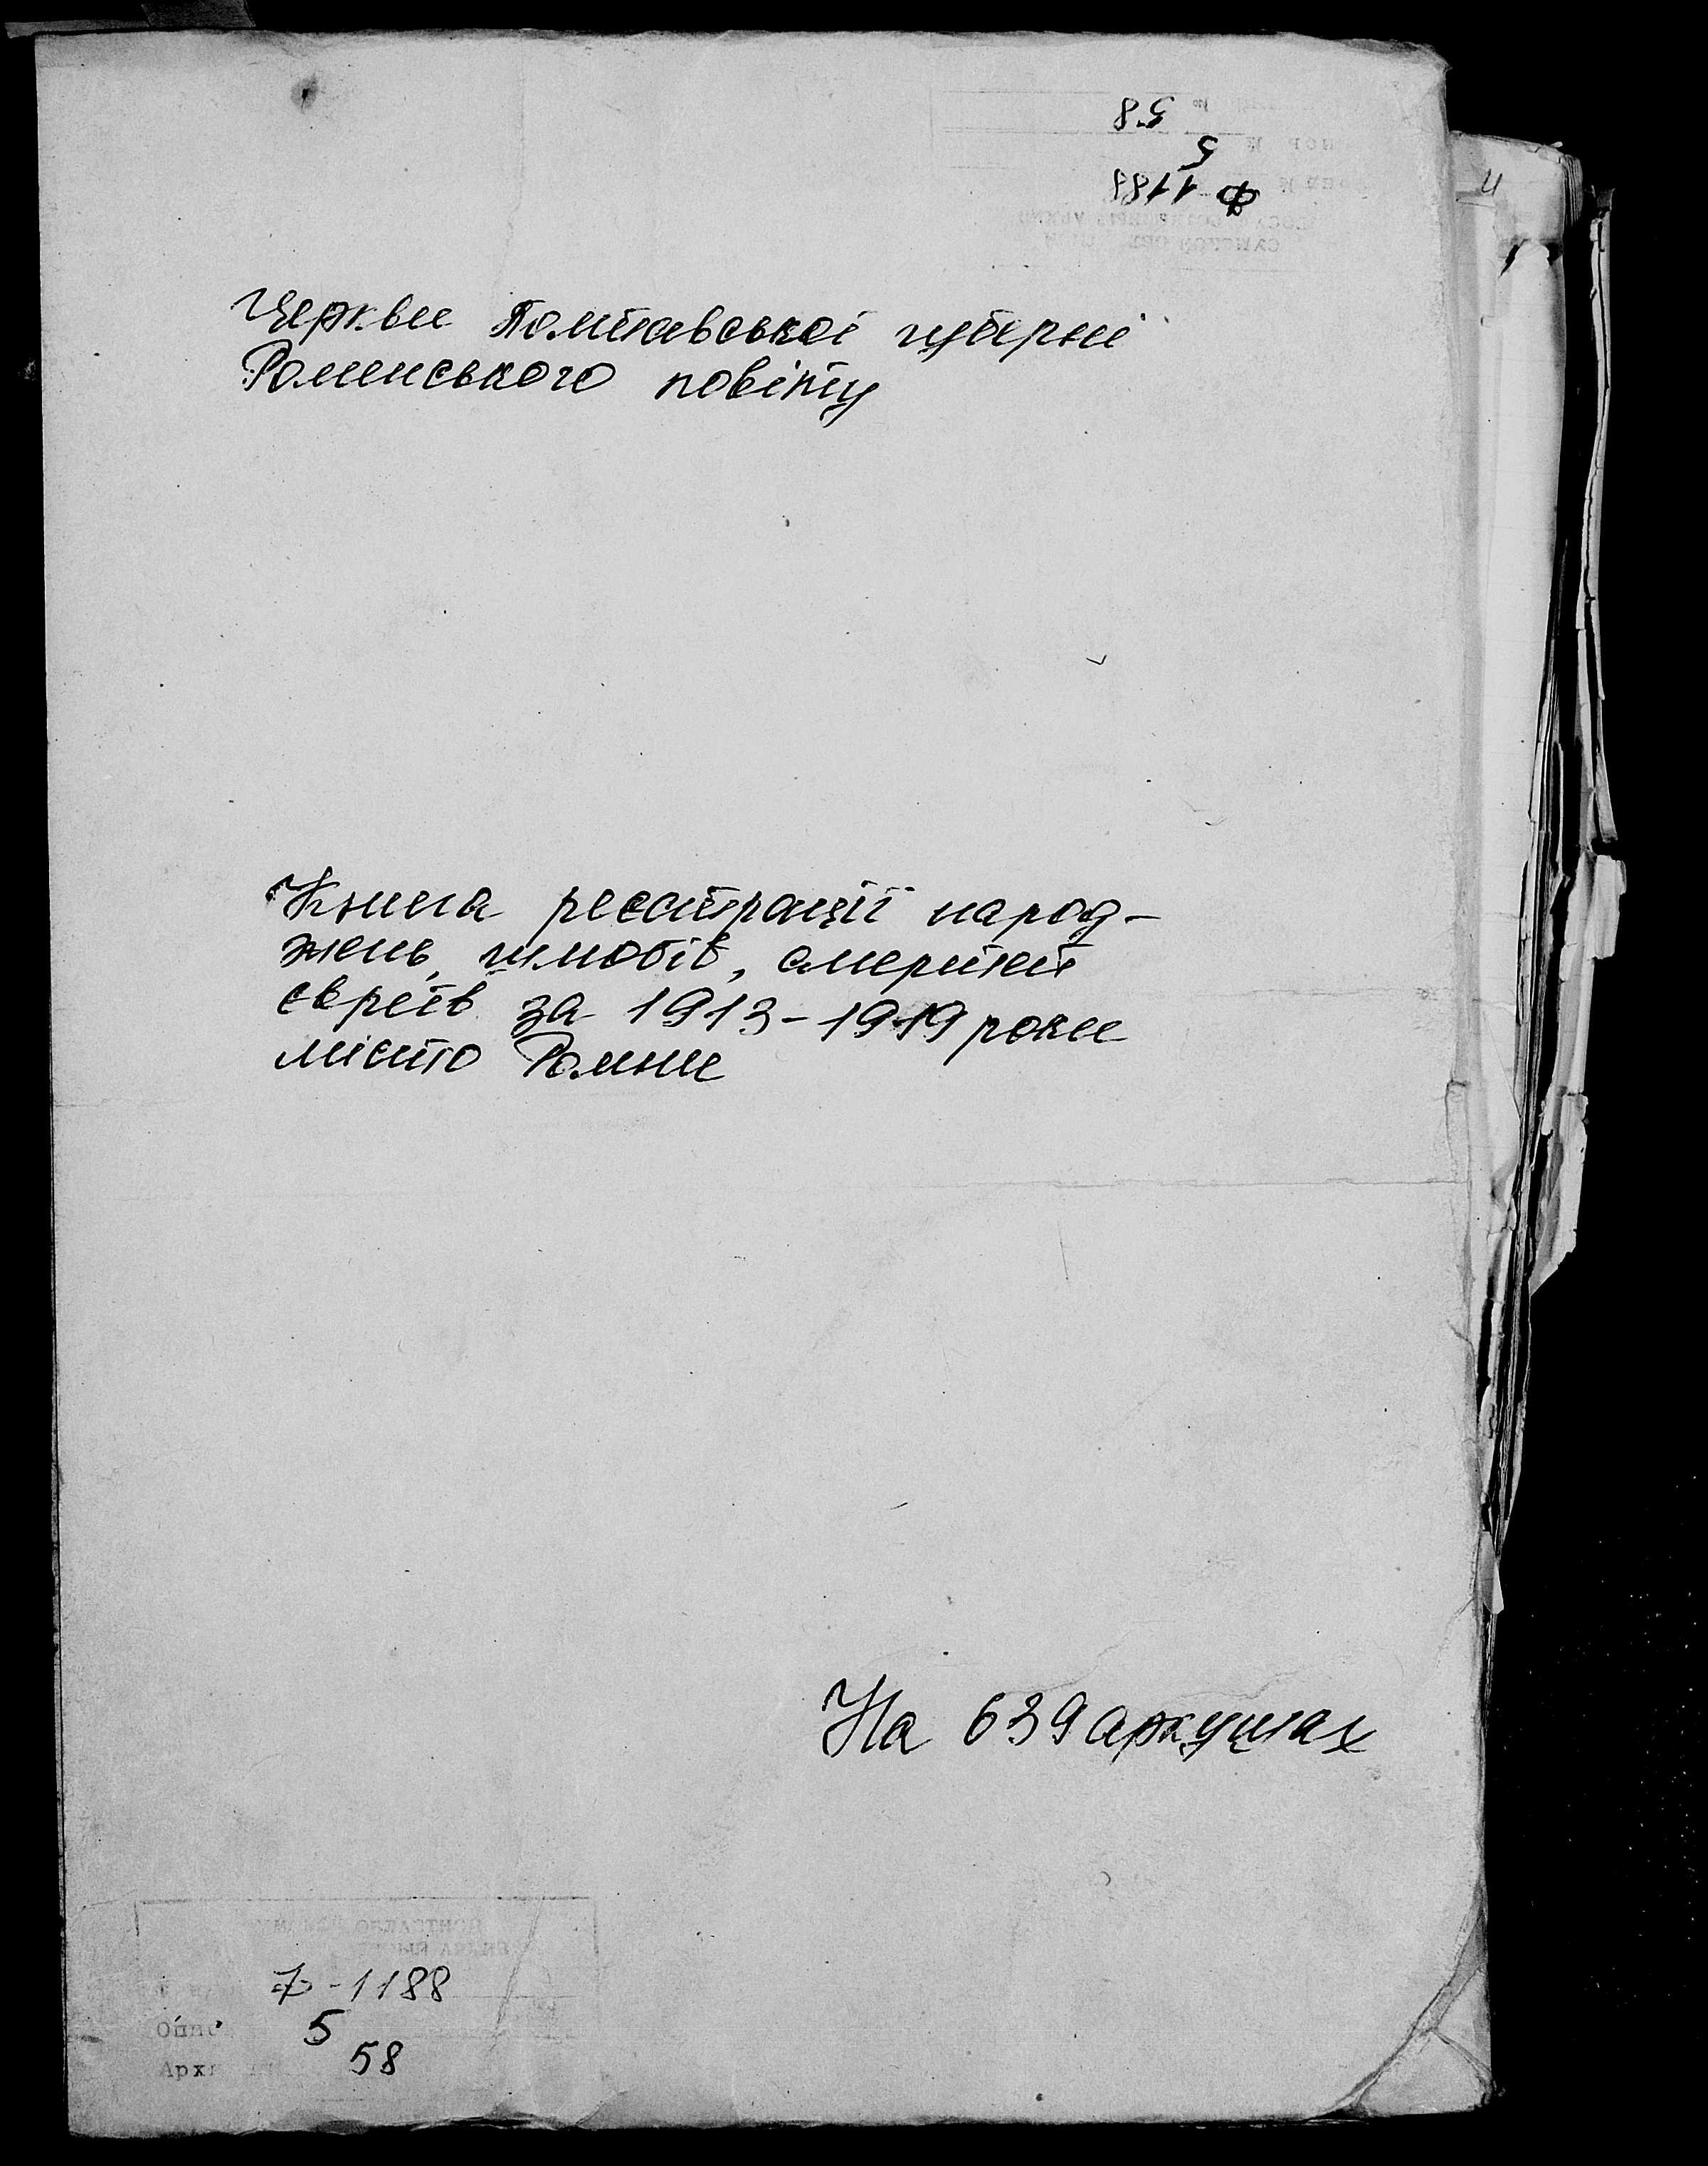 58
5
Ф 1188
Церкви Полтавської губерні
Роменського повіту
Книга реєстрації народ-
жень, шлюбів, смертей
євреїв за 1913-1919 роки
місто Ромни
На 639 аркушах
ОБЛАСТНОЙ
Ф-1188
5
58